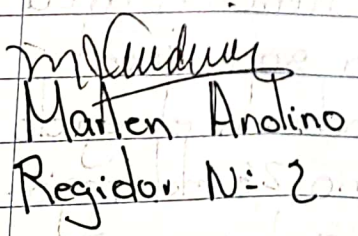 Marlen Anolino
Regidor N= 2